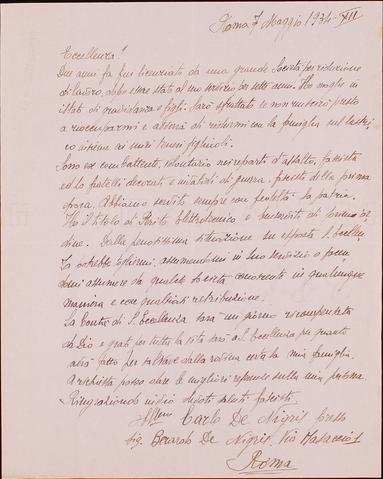 Roma, 7 Maggio 1934-XII
Eccellenza!
Due anni fa fui licenziato da una grande Società per riduzione
di lavoro, dopo essere stato al suo servizio per sette anni. Ho moglie in
istato di gravidanza e figli. Sarò sfrattato se non riuscirò presto
a rioccuparmi e dovrò ridurmi con la famiglia sul lastri-
co insieme ai miei teneri figliuoli.
Sono ex combattente, volontario nei reparti d'assalto, fascista
ed ho fratelli decorati e mutilati di guerra, fascisti della prima
ora. Abbiamo servito sempre con fedeltà la patria.
Ho il titolo di Perito Elettrotecnico e di primo or-
dine. Dalla penosissima situazione su esposta S. Eccellen-
za potrebbe togliermi, assumendomi in suo servizio o facen-
domi assumere da qualche Società conoscente in qualunque
maniera e con qualsiasi retribuzione.
La bontà di S. Eccellenza sarà un giorno ricompensata
da Dio e grato per tutta la vita sarò a S. Eccellenza per quanto
avrà fatto per salvare dalla rovina certa la mia famiglia.
A richiesta posso dare le migliori referenze sulla mia persona.
Ringraziando invio devoti saluti fascisti.
Carlo De Nigris presso
Sig. Gerardo De Nigris Via Masaccio 1
Roma